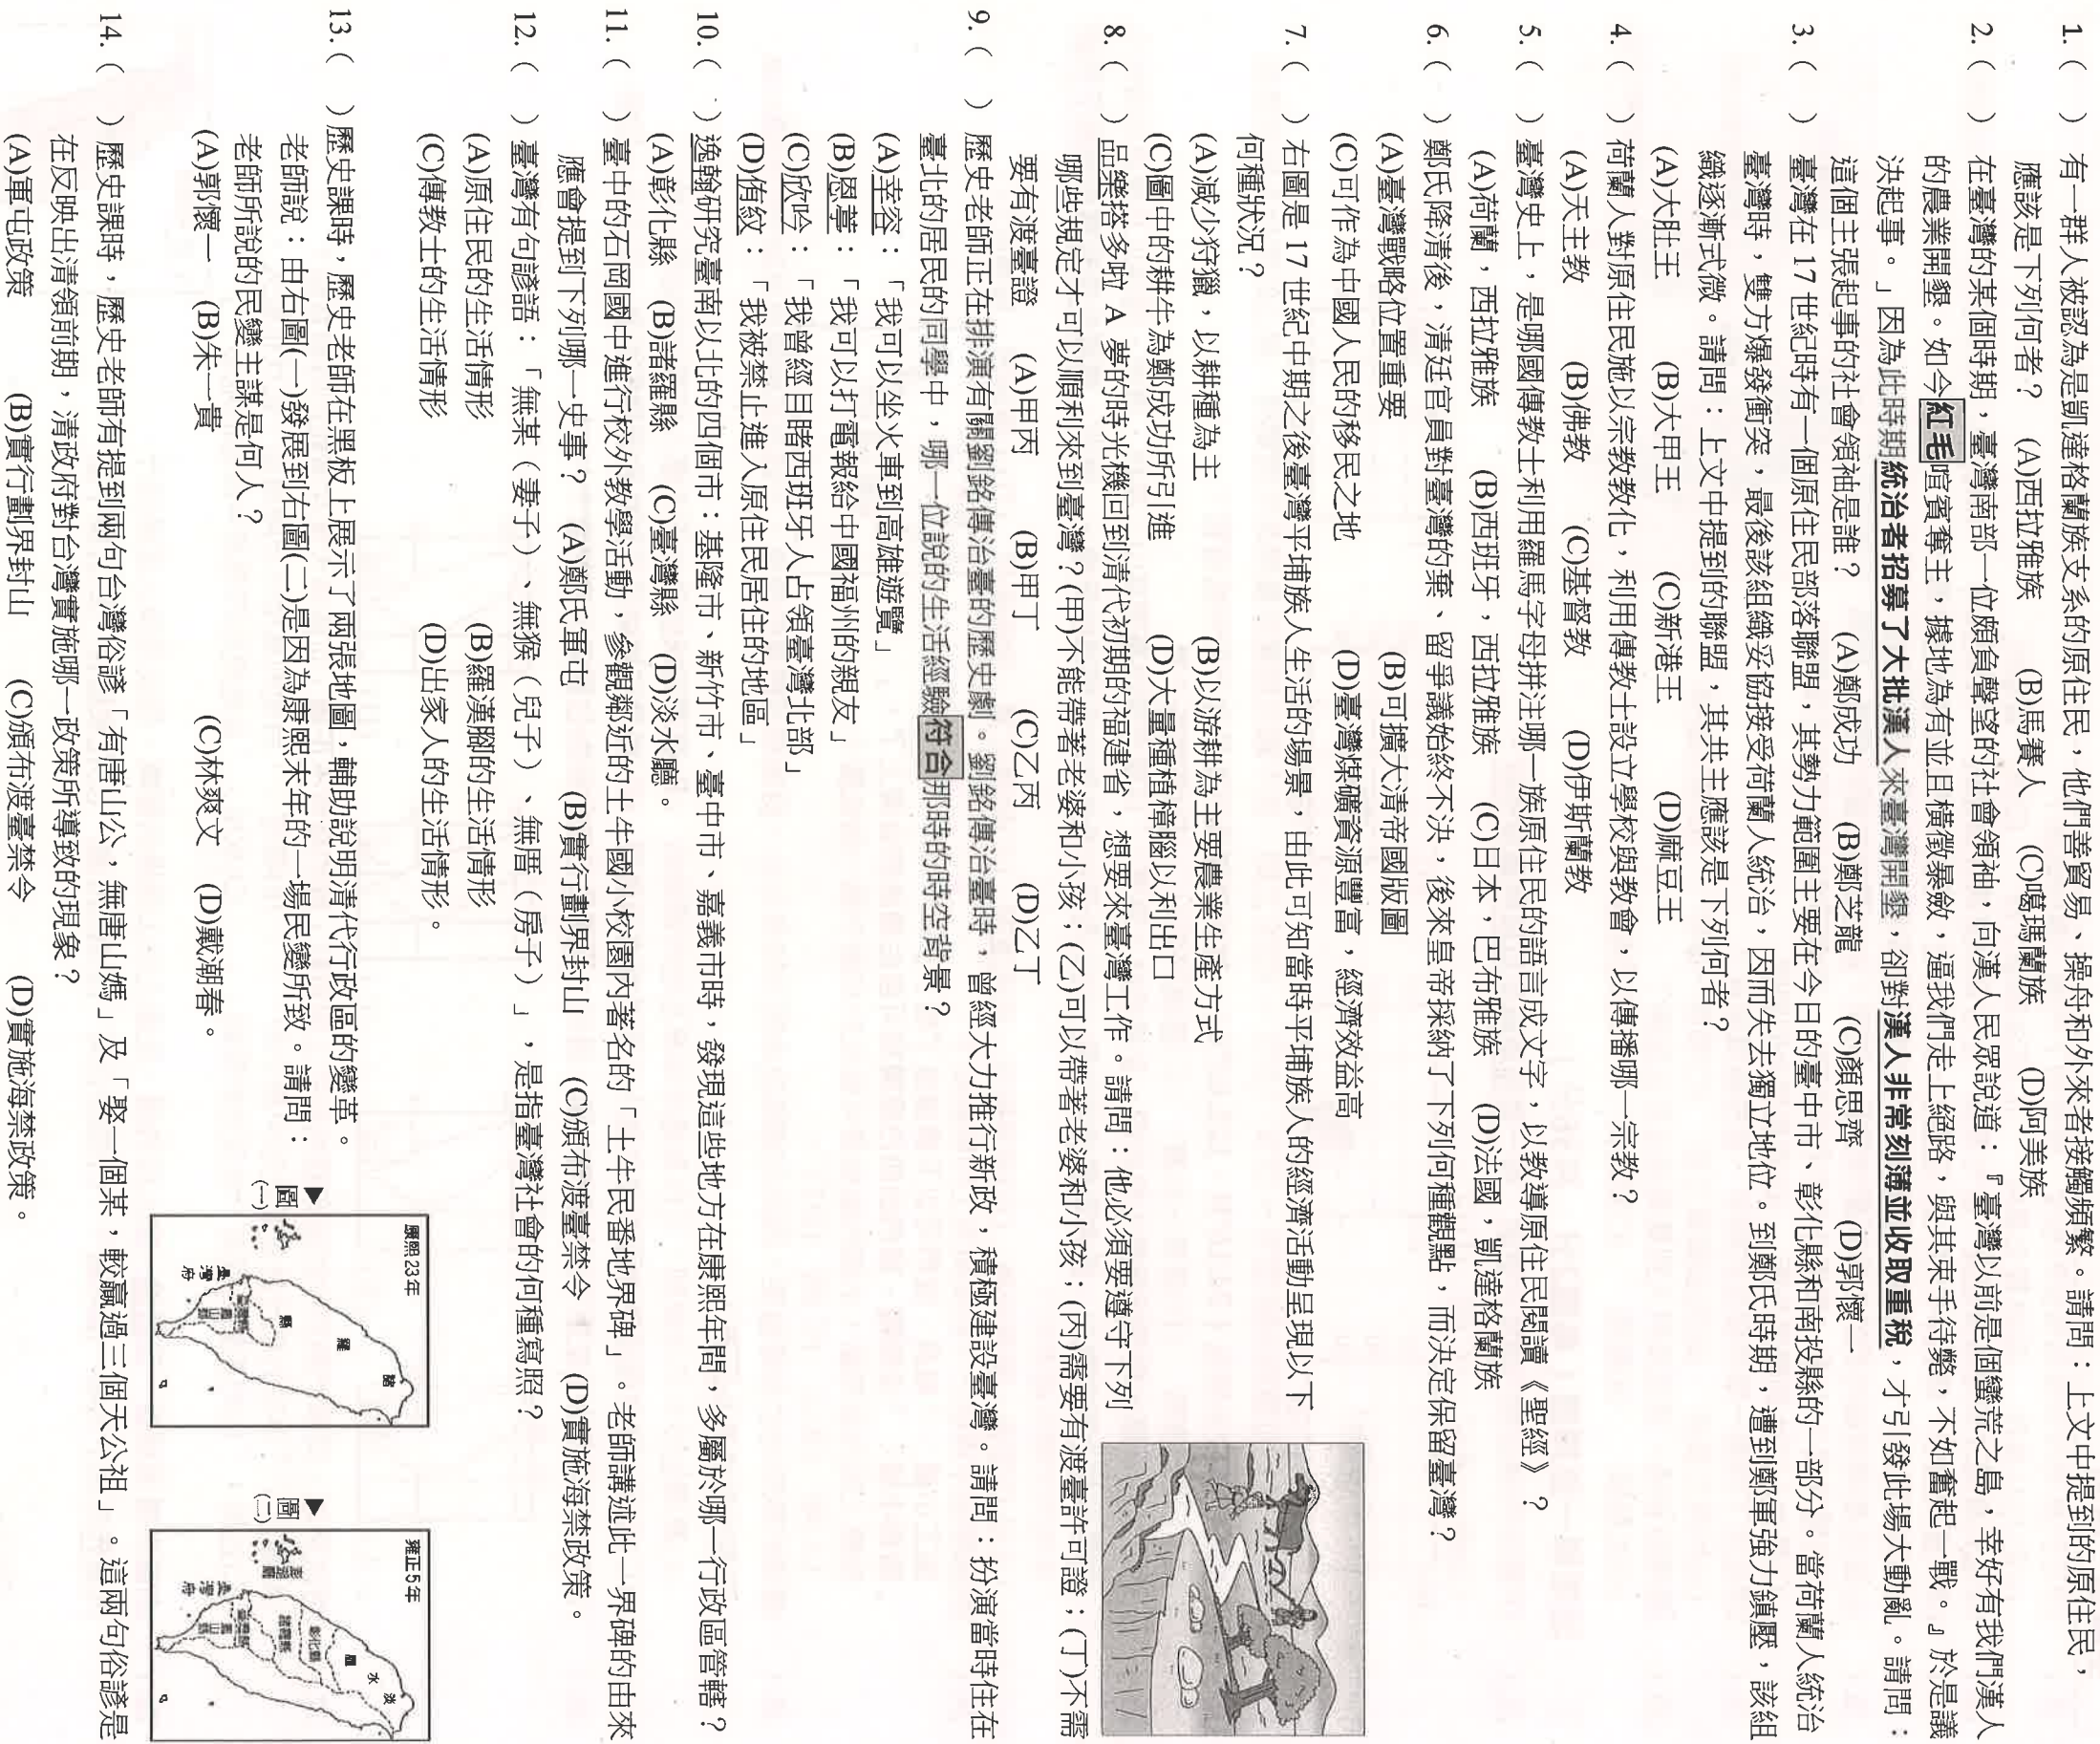 1.(　)有一群人被認為是凱達格蘭族支系的原住民，他們善貿易、操舟和外來者接觸頻繁。請問：上文中提到的原住民，
應該是下列何者？ (A)西拉雅族 (B)馬賽人 (C)噶瑪蘭族 (D)阿美族
2.(　)在臺灣的某個時期，臺灣南部一位頗負聲望的社會領袖，向漢人民眾說道：『臺灣以前是個蠻荒之島，幸好有我們漢人
的農業開墾。如今紅毛喧賓奪主，據地為有並且橫徵暴斂，逼我們走上絕路，與其束手待斃，不如奮起一戰。』於是議
決起事。」因為此時期統治者招募了大批漢人來臺灣開墾，卻對漢人非常刻薄並收取重稅，才引發此場大動亂。請問：
這個主張起事的社會領袖是誰？ (A)鄭成功 (B)鄭芝龍 (C)顏思齊 (D)郭懷一
3.(　)臺灣在 17 世紀時有一個原住民部落聯盟，其勢力範圍主要在今日的臺中市、彰化縣和南投縣的一部分。當荷蘭人統治
臺灣時，雙方爆發衝突，最後該組織妥協接受荷蘭人統治，因而失去獨立地位。到鄭氏時期，遭到鄭軍強力鎮壓，該組
織逐漸式微。請問：上文中提到的聯盟，其共主應該是下列何者？
(A)大肚王 (B)大甲王 (C)新港王 (D)麻豆王
4.(　)荷蘭人對原住民施以宗教教化，利用傳教士設立學校與教會，以傳播哪一宗教？
(A)天主教 (B)佛教 (C)基督教 (D)伊斯蘭教
5.(　)臺灣史上，是哪國傳教士利用羅馬字母拼注哪一族原住民的語言成文字，以教導原住民閱讀《聖經》？
(A)荷蘭，西拉雅族 (B)西班牙，西拉雅族 (C)日本，巴布雅族 (D)法國，凱達格蘭族
6.(　)鄭氏降清後，清廷官員對臺灣的棄、留爭議始終不決，後來皇帝採納了下列何種觀點，而決定保留臺灣？
(A)臺灣戰略位置重要 (B)可擴大清帝國版圖
(C)可作為中國人民的移民之地 (D)臺灣煤礦資源豐富，經濟效益高
7.(　)右圖是 17 世紀中期之後臺灣平埔族人生活的場景，由此可知當時平埔族人的經濟活動呈現以下
何種狀況？
(A)減少狩獵，以耕種為主 (B)以游耕為主要農業生產方式
(C)圖中的耕牛為鄭成功所引進 (D)大量種植樟腦以利出口
8.(　)品樂搭多啦 A 夢的時光機回到清代初期的福建省，想要來臺灣工作。請問：他必須要遵守下列
哪些規定才可以順利來到臺灣？(甲)不能帶著老婆和小孩；(乙)可以帶著老婆和小孩；(丙)需要有渡臺許可證；(丁)不需
要有渡臺證 (A)甲丙 (B)甲丁 (C)乙丙 (D)乙丁
9.(　)歷史老師正在排演有關劉銘傳治臺的歷史劇。劉銘傳治臺時，曾經大力推行新政，積極建設臺灣。請問：扮演當時住在
臺北的居民的同學中，哪一位說的生活經驗符合那時的時空背景？
(A)幸容：「我可以坐火車到高雄遊覽」
(B)恩葶：「我可以打電報給中國福州的親友」
(C)欣吟：「我曾經目睹西班牙人占領臺灣北部」
(D)侑紋：「我被禁止進入原住民居住的地區」
10.(　)逸翰研究臺南以北的四個市：基隆市、新竹市、臺中市、嘉義市時，發現這些地方在康熙年間，多屬於哪一行政區管轄？
(A)彰化縣 (B)諸羅縣 (C)臺灣縣 (D)淡水廳。
11.(　)臺中的石岡國中進行校外教學活動，參觀鄰近的土牛國小校園內著名的「土牛民番地界碑」。老師講述此一界碑的由來
應會提到下列哪一史事？ (A)鄭氏軍屯 (B)實行劃界封山 (C)頒布渡臺禁令 (D)實施海禁政策。
12.(　)臺灣有句諺語：「無某（妻子）、無猴（兒子）、無厝（房子）」，是指臺灣社會的何種寫照？
(A)原住民的生活情形 (B)羅漢腳的生活情形
(C)傳教士的生活情形 (D)出家人的生活情形。
13.(　)歷史課時，歷史老師在黑板上展示了兩張地圖，輔助說明清代行政區的變革。
老師說：由右圖(一)發展到右圖(二)是因為康熙末年的一場民變所致。請問：
老師所說的民變主謀是何人？
(A)郭懷一 (B)朱一貴 (C)林爽文 (D)戴潮春。
▲圖(一)
康熙23年
諸羅縣
臺灣縣
鳳山縣
臺灣府
▲圖(二)
雍正5年
淡水廳
彰化縣
諸羅縣
臺灣縣
鳳山縣
澎湖廳
臺灣府
14.(　)歷史課時，歷史老師有提到兩句台灣俗諺「有唐山公，無唐山媽」及「娶一個某，較贏過三個天公祖」。這兩句俗諺是
在反映出清領前期，清政府對台灣實施哪一政策所導致的現象？
(A)軍屯政策 (B)實行劃界封山 (C)頒布渡臺禁令 (D)實施海禁政策。